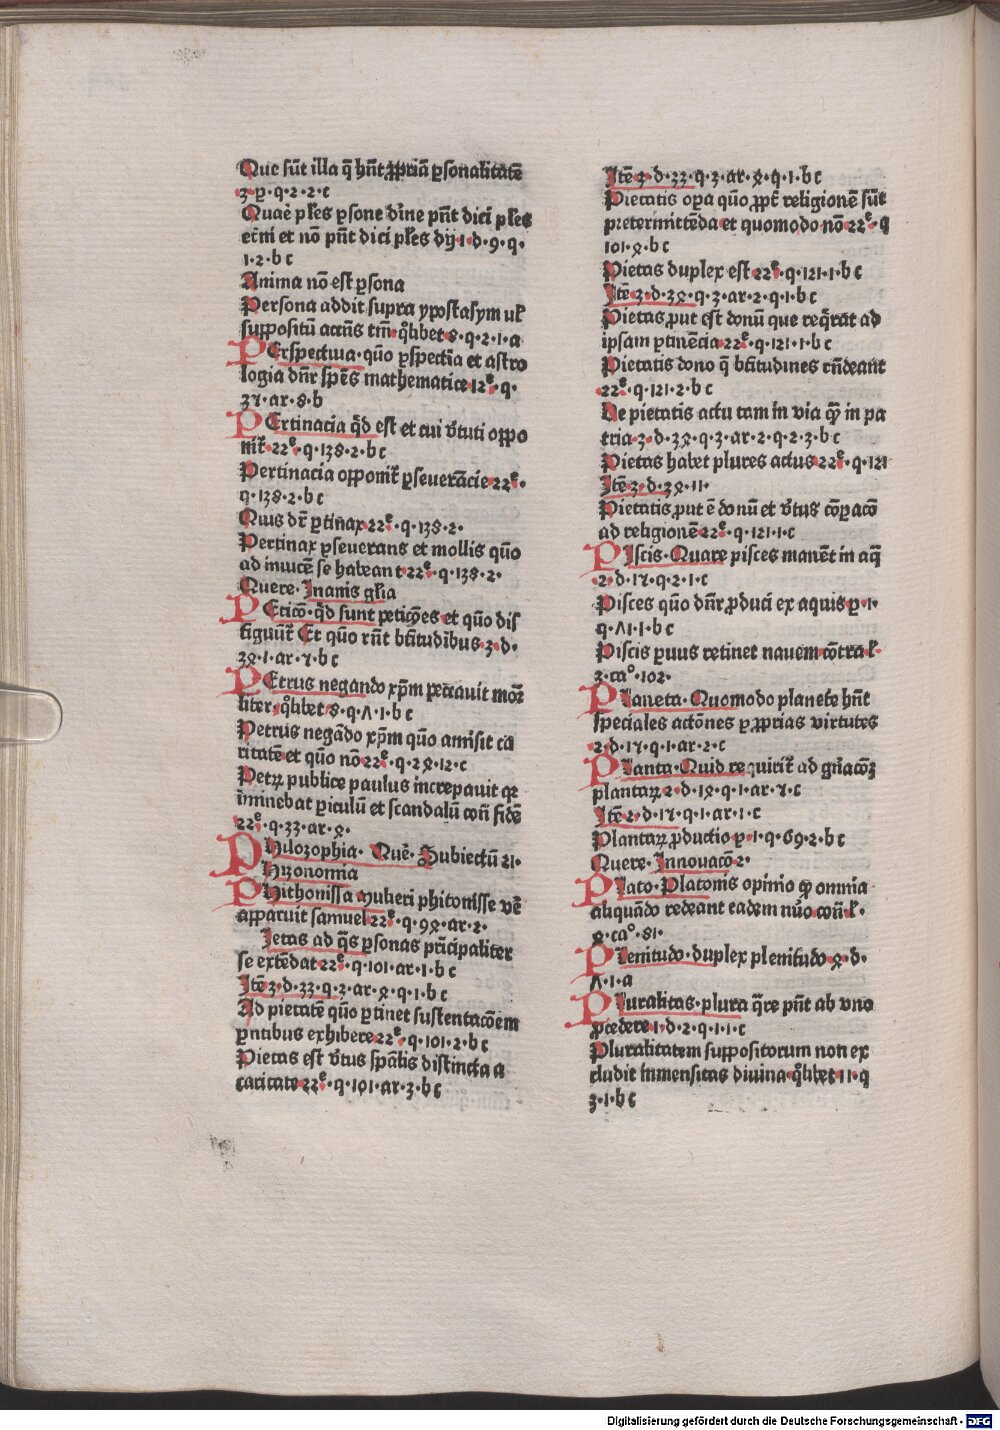 Que sūt illa q̄ hn̄t ꝓpriā ꝑsonalitatē
3·ꝑ·q·2·2·c
Quare pl̄es ꝑsone diu̅e pn̄t dici pl̄es
et̄ni et nō pn̄t dici pl̄es dij·1·d·9·q·
1·2·b c
Anima nō est ꝑsona
Persona addit supra ypostasym ul̄
suppositū actus tm̄·qͦlibet 8·q·2·1·a
PErspectiua·quō ꝑspectia et astro
logia dn̄r spēs mathematice 12ͤ·q·
37·ar·8·b
PErtinacia qͥd est et cui v̄tuti oppo
nit̄ 22ͤ·q·138·2·b c
Pertinacia opponit̄ ꝑseuerācie 22ͤ·
q·138·2·b c
Quis dr̄ ꝑtinax 22ͤ·q·138·2·
Pertinax ꝑseuerans et mollis quō
ad inuicē se habeant 22ͤ·q·138·2·
Quere·Inanis glīa
PEticō·qͥd sunt peticōes et quō dis
tiguūt̄ Et quō rn̄t bt̄itudibus 3·d·
34·1·ar·7·b c
PEtrus negando xp̄m peccauit mor
liter·qͦlibet 8·q·Λ·1·b c
Petrus negādo xp̄m quō amisit ca
ritatē et quō nō 22ͤ·q·24·12·c
Petrꝝ publice paulus increpauit qꝛ
īminebat ꝑiculū et scandalū con̄ fidē
22ͤ·q·33·ar·4·
PHilozophia·Que·Subiectū 21·
Hizonomia
PHithonissa Muberi phitonisse vē
apparuit samuel 22ͤ·q·94·ar·2·
Ietas ad qͣs ꝑsonas pn̄cipaliter
se extēdat 22ͤ·q·101·ar·1·b c
Itē 3·d·33·q·3·ar·4·q·1·b c
Ad pietatē quō ꝑtinet sustentacōem
ꝑntibus exhibere 22ͤ·q·101·2·b c
Pietas est v̄tus spālis distincta a
caritate 22ͤ·q·101·ar·3·b c
Itē 3·d·33·q·3·ar·4·q·1·b c
Pietatis oꝑa quō ꝓpt̄ religionē sūt
pretermittēda et quomodo nō 22ͤ·q
101·4·b c
Pietas duplex est 22ͤ·q·121·1·b c
Itē 3·d·34·q·3·ar·2·q·1·b c
Pietas ꝓut est donū que reqͥrat ad
ipsam ꝑtinēcia 22ͤ·q·121·1·b c
Pietatis dono q̄ bt̄itudines rn̄deant
22ͤ·q·121·2·b c
De pietatis actu tam in via qͣꝫ in pa
tria 3·d·34·q·3·ar·2·q·2·3·b c
Pietas habet plures actus 22ͤ·q·121
Itē 3·d·34·11·
Pietatis ꝓut ē donū et v̄tus cōꝑacō
ad religionē 22ͤ·q·121·1·c
PIscis·Quare pisces manēt in aqͣ
2·d·17·q·2·1·c
Pisces quō dn̄r ꝓduci ex aquis ꝑ·1·
q·Λ1·1·b c
Piscis ꝑuus retinet nauem cōtra l̄·
3·caͦ·102·
PLaneta·Quomodo planete hn̄t
speciales actōnes ꝑ ꝓprias virtutes
2·d·17·q·1·ar·2·c
PLanta·Quid requirit̄ ad gn̄acōꝫ
plantaꝝ 2·d·14·q·1·ar·7·c
Itē 2·d·17·q·1·ar·1·c
Plantaꝝ ꝓductio ꝑ·1·q·69·2·b c
Quere·Innouacō 2·
PLato·Platonis opinio qͣꝫ omnia
aliquādo redeant eadem nūo con̄ l̄·
4·caͦ·81·
PLenitudo·duplex plenitudo 4·d·
Λ·1·a
PLuralitas·plura qͣre pn̄t ab vno
ꝓcedere 1·d·2·q·1·1·c
Pluralitatem suppositorum non ex
cludit immensitas diuina qͦlibet 11·q
3·1·b c
Digitalisierung gefördert durch die Deutsche Forschungsgemeinschaft - DFG